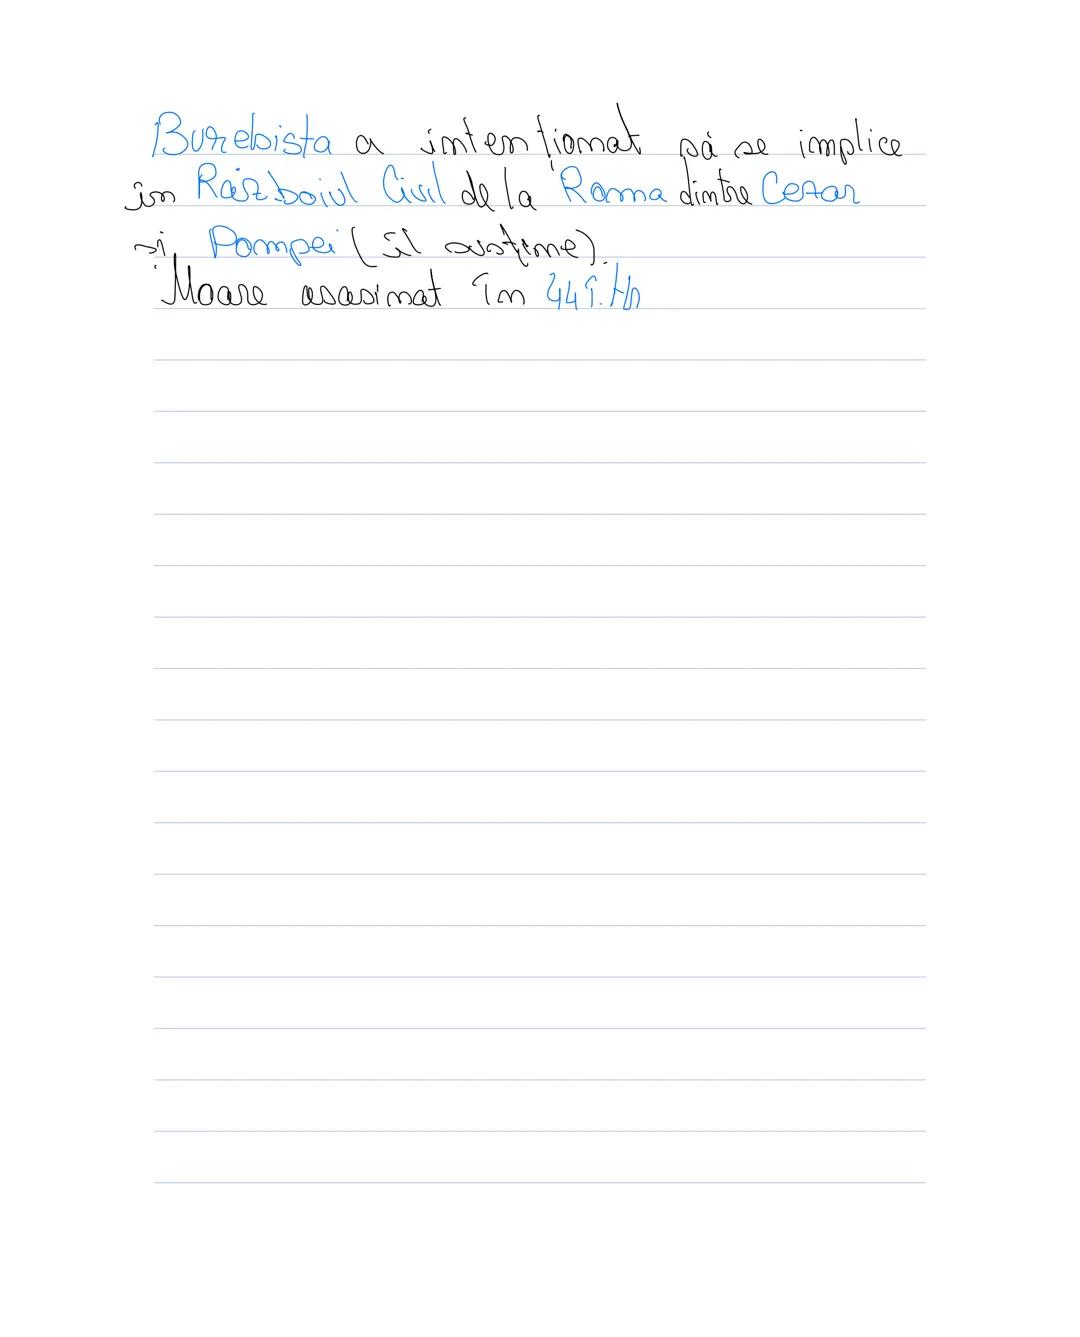 Burebista a intenționat să se implice
în Război​ul Civil de la Roma dintre Cezar
și Pompei (îl susține).
Moare asasinat în 44 î.Hr